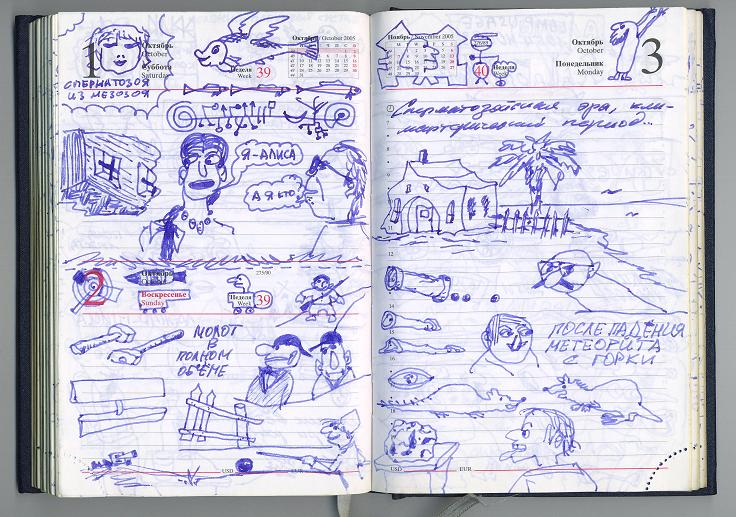 1
Октябрь
October
Суббота
Saturday
Октябрь October 2005
Неделя
Week 39
СПЕРМАТОЗОЯ
ИЗ МЕЗОЗОЯ
Я-АЛИСА
А Я КТО
2
Октябрь
275/90
Воскресенье
Sunday
Неделя
Week 39
МОЛОТ
В
ПОЛНОМ
ОБЪЁМЕ
USD
EUR
Ноябрь November 2005
276/89
40 Неделя
Week
Октябрь
October
Понедельник
Monday
3
Сперматозойская эра, кли-
мактерический период...
12
14
15
16
ПОСЛЕ ПАДЕНИЯ
МЕТЕОРИТА
С ГОРКИ
USD
EUR